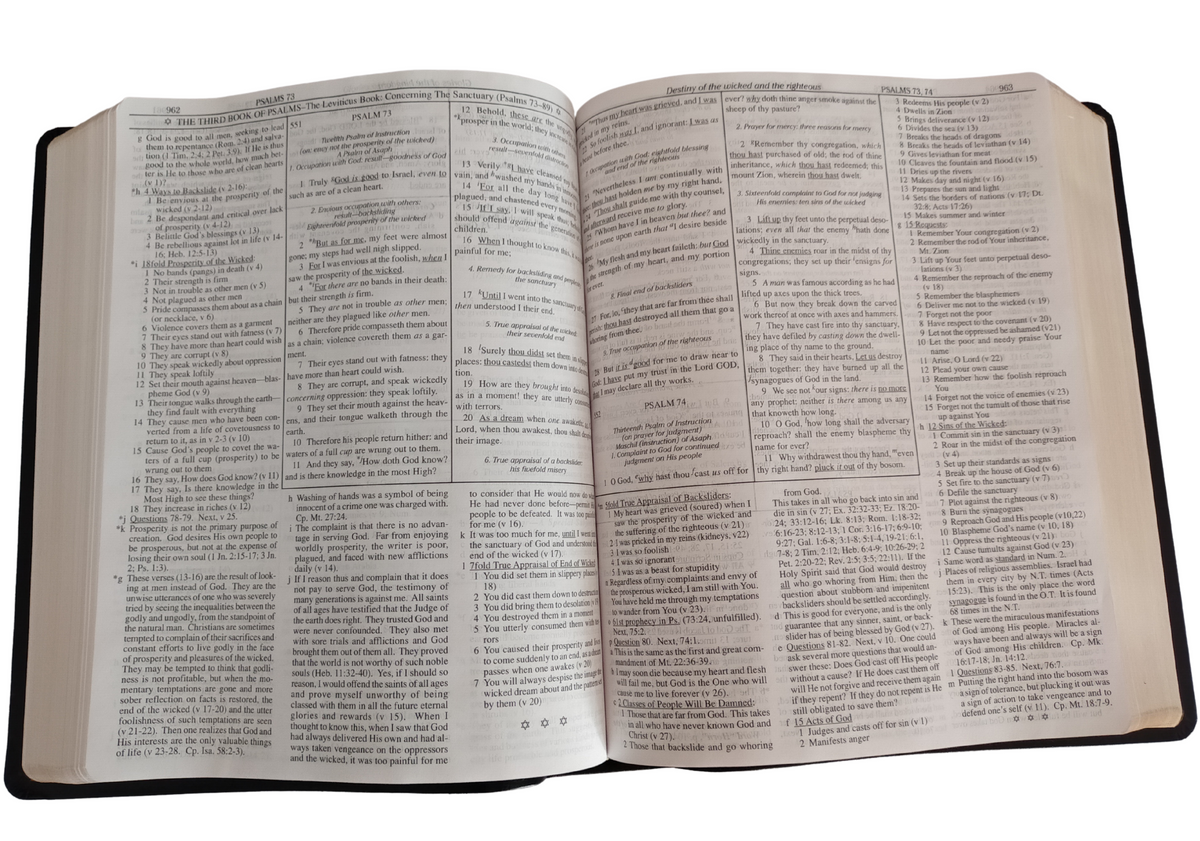 962
PSALMS 73
✡ THE THIRD BOOK OF PSALMS–The Leviticus Book: Concerning The Sanctuary (Psalms 73–89)
g God is good to all men, seeking to lead
them to repentance (Rom. 2:4) and salva-
tion (1 Tim. 2:4; 2 Pet. 3:9). If He is thus
good to the whole world, how much bet-
ter is He to those who are of clean hearts
(v 1)?
*h 4 Ways to Backslide (v 2-16):
1 Be envious at the prosperity of the
wicked (v 2-12)
2 Be despondent and critical over lack
of prosperity (v 4-12)
3 Belittle God's blessings (v 13)
4 Be rebellious against lot in life (v 14-
16; Heb. 12:5-13)
*i 18fold Prosperity of the Wicked:
1 No bands (pangs) in death (v 4)
2 Their strength is firm
3 Not in trouble as other men (v 5)
4 Not plagued as other men
5 Pride compasses them about as a chain
(or necklace, v 6)
6 Violence covers them as a garment
7 Their eyes stand out with fatness (v 7)
8 They have more than heart could wish
9 They are corrupt (v 8)
10 They speak wickedly about oppression
11 They speak loftily
12 Set their mouth against heaven–blas-
pheme God (v 9)
13 Their tongue walks through the earth–
they find fault with everything
14 They cause men who have been con-
verted from a life of covetousness to
return to it, as in v 2-3 (v 10)
15 Cause God's people to covet the wa-
ters of a full cup (prosperity) to be
wrung out to them
16 They say, How does God know? (v 11)
17 They say, Is there knowledge in the
Most High to see these things?
18 They increase in riches (v 12)
*j Questions 78-79. Next, v 25.
*k Prosperity is not the primary purpose of
creation. God desires His own people to
be prosperous, but not at the expense of
losing their own soul (1 Jn. 2:15-17; 3 Jn.
2; Ps. 1:3).
*g These verses (13-16) are the result of look-
ing at men instead of God. They are the
unwise utterances of one who was severely
tried by seeing the inequalities between the
godly and ungodly, from the standpoint of
the natural man. Christians are sometimes
tempted to complain of their sacrifices and
constant efforts to live godly in the face
of prosperity and pleasures of the wicked.
They may be tempted to think that godli-
ness is not profitable, but when the mo-
mentary temptations are gone and more
sober reflection on facts is restored, the
end of the wicked (v 17-20) and the utter
foolishness of such temptations are seen
(v 21-22). Then one realizes that God and
His interests are the only valuable things
of life (v 23-28. Cp. Isa. 58:2-3).
551
PSALM 73
Twelfth Psalm of Instruction
(on envy not the prosperity of the wicked)
A Psalm of Asaph
1. Occupation with God: result—goodness of God
1 Truly God is good to Israel, even to
such as are of a clean heart.
2. Envious occupation with others:
result—backsliding
Eighteenfold prosperity of the wicked
2 But as for me, my feet were almost
gone; my steps had well nigh slipped.
3 For I was envious at the foolish, when I
saw the prosperity of the wicked.
4 For there are no bands in their death:
but their strength is firm.
5 They are not in trouble as other men;
neither are they plagued like other men.
6 Therefore pride compasseth them about
as a chain; violence covereth them as a gar-
ment.
7 Their eyes stand out with fatness: they
have more than heart could wish.
8 They are corrupt, and speak wickedly
concerning oppression: they speak loftily.
9 They set their mouth against the heav-
ens, and their tongue walketh through the
earth.
10 Therefore his people return hither: and
waters of a full cup are wrung out to them.
11 And they say, How doth God know?
and is there knowledge in the most High?
h Washing of hands was a symbol of being
innocent of a crime one was charged with.
Cp. Mt. 27:24.
i The complaint is that there is no advan-
tage in serving God. Far from enjoying
worldly prosperity, the writer is poor,
plagued, and faced with new afflictions
daily (v 14).
j If I reason thus and complain that it does
not pay to serve God, the testimony of
many generations is against me. All saints
of all ages have testified that the Judge of
the earth does right. They trusted God and
were never confounded. They also met
with sore trials and afflictions and God
brought them out of them all. They proved
that the world is not worthy of such noble
souls (Heb. 11:32-40). Yes, if I should so
reason, I would offend the saints of all ages
and prove myself unworthy of being
classed with them in all the future eternal
glories and rewards (v 15). When I
thought to know this, when I saw that God
had always delivered His own and had al-
ways taken vengeance on the oppressors
and the wicked, it was too painful for me
12 Behold, these are the
prosper in the world; they
3. Occupation with others:
result—sevenfold
13 Verily I have cleansed
vain, and washed my hands in
14 For all the day long
plagued, and chastened every
15 If I say, I will speak thus;
should offend against the generation
children.
16 When I thought to know this,
painful for me;
4. Remedy for backsliding and
the sanctuary
17 Until I went into the sanctuary of
then understood I their end.
5. True appraisal of the wicked:
their sevenfold end
18 Surely thou didst set them in
places: thou castedst them down into
tion.
19 How are they brought into
as in a moment! they are utterly
with terrors.
20 As a dream when one awaketh;
Lord, when thou awakest, thou shalt
their image.
6. True appraisal of a backslider:
his fivefold misery
to consider that He would now do
He had never done before—permit
people to be defeated. It was too painful
for me (v 16).
k It was too much for me, until I went
the sanctuary of God and understood
end of the wicked (v 17).
l 7fold True Appraisal of End of Wicked
1 You did set them in slippery places
18)
2 You did cast them down to
3 You did bring them to desolation
4 You destroyed them in a moment
5 You utterly consumed them
rors
6 You caused their prosperity and
to come suddenly to an end, as
passes when one awakes (v 20)
7 You will always despise the image
wicked dream about and the
by them (v 20)
✡ ✡ ✡
Destiny of the wicked and the righteous
PSALMS 73, 74
963
Thus my heart was grieved, and I was
in my reins.
So foolish was I, and ignorant: I was as
beast before thee.
Occupation with God: eightfold blessing
and end of the righteous
Nevertheless I am continually with
thou hast holden me by my right hand.
Thou shalt guide me with thy counsel,
afterward receive me to glory.
Whom have I in heaven but thee? and
there is none upon earth that I desire beside
My flesh and my heart faileth: but God
the strength of my heart, and my portion
for ever.
8. Final end of backsliders
For, lo, they that are far from thee shall
perish: thou hast destroyed all them that go a
whoring from thee.
9. True occupation of the righteous
28 But it is good for me to draw near to
God: I have put my trust in the Lord GOD,
that I may declare all thy works.
552
PSALM 74
Thirteenth Psalm of Instruction
(on prayer for judgment)
Maschil (instruction) of Asaph
1. Complaint to God for continued
judgment on His people
1 O God, why hast thou cast us off for
5fold True Appraisal of Backsliders:
1 My heart was grieved (soured) when I
saw the prosperity of the wicked and
the suffering of the righteous (v 21)
2 I was pricked in my reins (kidneys, v22)
3 I was so foolish
4 I was so ignorant
5 I was as a beast for stupidity
n Regardless of my complaints and envy of
the prosperous wicked, I am still with You.
You have held me through my temptations
to wander from You (v 23).
o 61st prophecy in Ps. (73:24, unfulfilled).
Next, 75:2.
p Question 80. Next, 74:1.
a This is the same as the first and great com-
mandment of Mt. 22:36-39.
b I may soon die because my heart and flesh
will fail me, but God is the One who will
cause me to live forever (v 26).
c 2 Classes of People Will Be Damned:
1 Those that are far from God. This takes
in all who have never known God and
Christ (v 27).
2 Those that backslide and go whoring
ever? why doth thine anger smoke against the
sheep of thy pasture?
2. Prayer for mercy: three reasons for mercy
2 Remember thy congregation, which
thou hast purchased of old; the rod of thine
inheritance, which thou hast redeemed; this
mount Zion, wherein thou hast dwelt.
3. Sixteenfold complaint to God for not judging
His enemies: ten sins of the wicked
3 Lift up thy feet unto the perpetual deso-
lations; even all that the enemy hath done
wickedly in the sanctuary.
4 Thine enemies roar in the midst of thy
congregations; they set up their ensigns for
signs.
5 A man was famous according as he had
lifted up axes upon the thick trees.
6 But now they break down the carved
work thereof at once with axes and hammers.
7 They have cast fire into thy sanctuary,
they have defiled by casting down the dwell-
ing place of thy name to the ground.
8 They said in their hearts, Let us destroy
them together: they have burned up all the
synagogues of God in the land.
9 We see not our signs: there is no more
any prophet: neither is there among us any
that knoweth how long.
10 O God, how long shall the adversary
reproach? shall the enemy blaspheme thy
name for ever?
11 Why withdrawest thou thy hand, even
thy right hand? pluck it out of thy bosom.
from God.
This takes in all who go back into sin and
die in sin (v 27; Ex. 32:32-33; Ez. 18:20-
24; 33:12-16; Lk. 8:13; Rom. 1:18-32;
6:16-23; 8:12-13; 1 Cor. 3:16-17; 6:9-10;
9:27; Gal. 1:6-8; 3:1-8; 5:1-4, 19-21; 6:1,
7-8; 2 Tim. 2:12; Heb. 6:4-9; 10:26-29; 2
Pet. 2:20-22; Rev. 2:5; 3:5; 22:11). If the
Holy Spirit said that God would destroy
all who go whoring from Him, then the
question about stubborn and impenitent
backsliders should be settled accordingly.
d This is good for everyone, and is the only
guarantee that any sinner, saint, or back-
slider has of being blessed by God (v 27).
e Questions 81-82. Next, v 10. One could
ask several more questions that would an-
swer these: Does God cast off His people
without a cause? If He does cast them off
will He not forgive and receive them again
if they repent? If they do not repent is He
still obligated to save them?
f 15 Acts of God
1 Judges and casts off for sin (v 1)
2 Manifests anger
3 Redeems His people (v 2)
4 Dwells in Zion
5 Brings deliverance (v 12)
6 Divides the sea (v 13)
7 Breaks the heads of dragons
8 Breaks the heads of leviathan (v 14)
9 Gives leviathan for meat
10 Cleaves the fountain and flood (v 15)
11 Dries up the rivers
12 Makes day and night (v 16)
13 Prepares the sun and light
14 Sets the borders of nations (v 17; Dt.
32:8; Acts 17:26)
15 Makes summer and winter
g 15 Requests:
1 Remember Your congregation (v 2)
2 Remember the rod of Your inheritance,
Mt. Zion
3 Lift up Your feet unto perpetual deso-
lations (v 3)
4 Remember the reproach of the enemy
(v 18)
5 Remember the blasphemers
6 Deliver me not to the wicked (v 19)
7 Forget not the poor
8 Have respect to the covenant (v 20)
9 Let not the oppressed be ashamed (v21)
10 Let the poor and needy praise Your
name
11 Arise, O Lord (v 22)
12 Plead your own cause
13 Remember how the foolish reproach
You
14 Forget not the voice of enemies (v 23)
15 Forget not the tumult of those that rise
up against You
h 12 Sins of the Wicked:
1 Commit sin in the sanctuary (v 3)
2 Roar in the midst of the congregation
(v 4)
3 Set up their standards as signs
4 Break up the house of God (v 6)
5 Set fire to the sanctuary (v 7)
6 Defile the sanctuary
7 Plot against the righteous (v 8)
8 Burn the synagogues
9 Reproach God and His people (v10,22)
10 Blaspheme God's name (v 10, 18)
11 Oppress the righteous (v 21)
12 Cause tumults against God (v 23)
i Same word as standard in Num. 2.
j Places of religious assemblies. Israel had
them in every city by N.T. times (Acts
15:23). This is the only place the word
synagogue is found in the O.T. It is found
68 times in the N.T.
k These were the miraculous manifestations
of God among His people. Miracles al-
ways have been and always will be a sign
of God among His children. Cp. Mk.
16:17-18; Jn. 14:12.
l Questions 83-85. Next, 76:7.
m Putting the right hand into the bosom was
a sign of toleration, but plucking it out was
a sign of action to take vengeance and to
defend one's self (v 11). Cp. Mt. 18:7-9.
✡ ✡ ✡